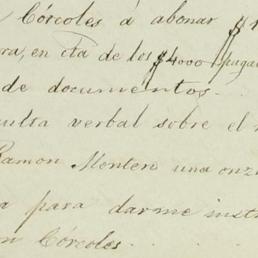 Córcoles á abonar $
ra, en cta de los $4000 pagad
de documentos.
ulta verbal sobre el
Ramon Montero una onz
a para darme inst
n Córcoles